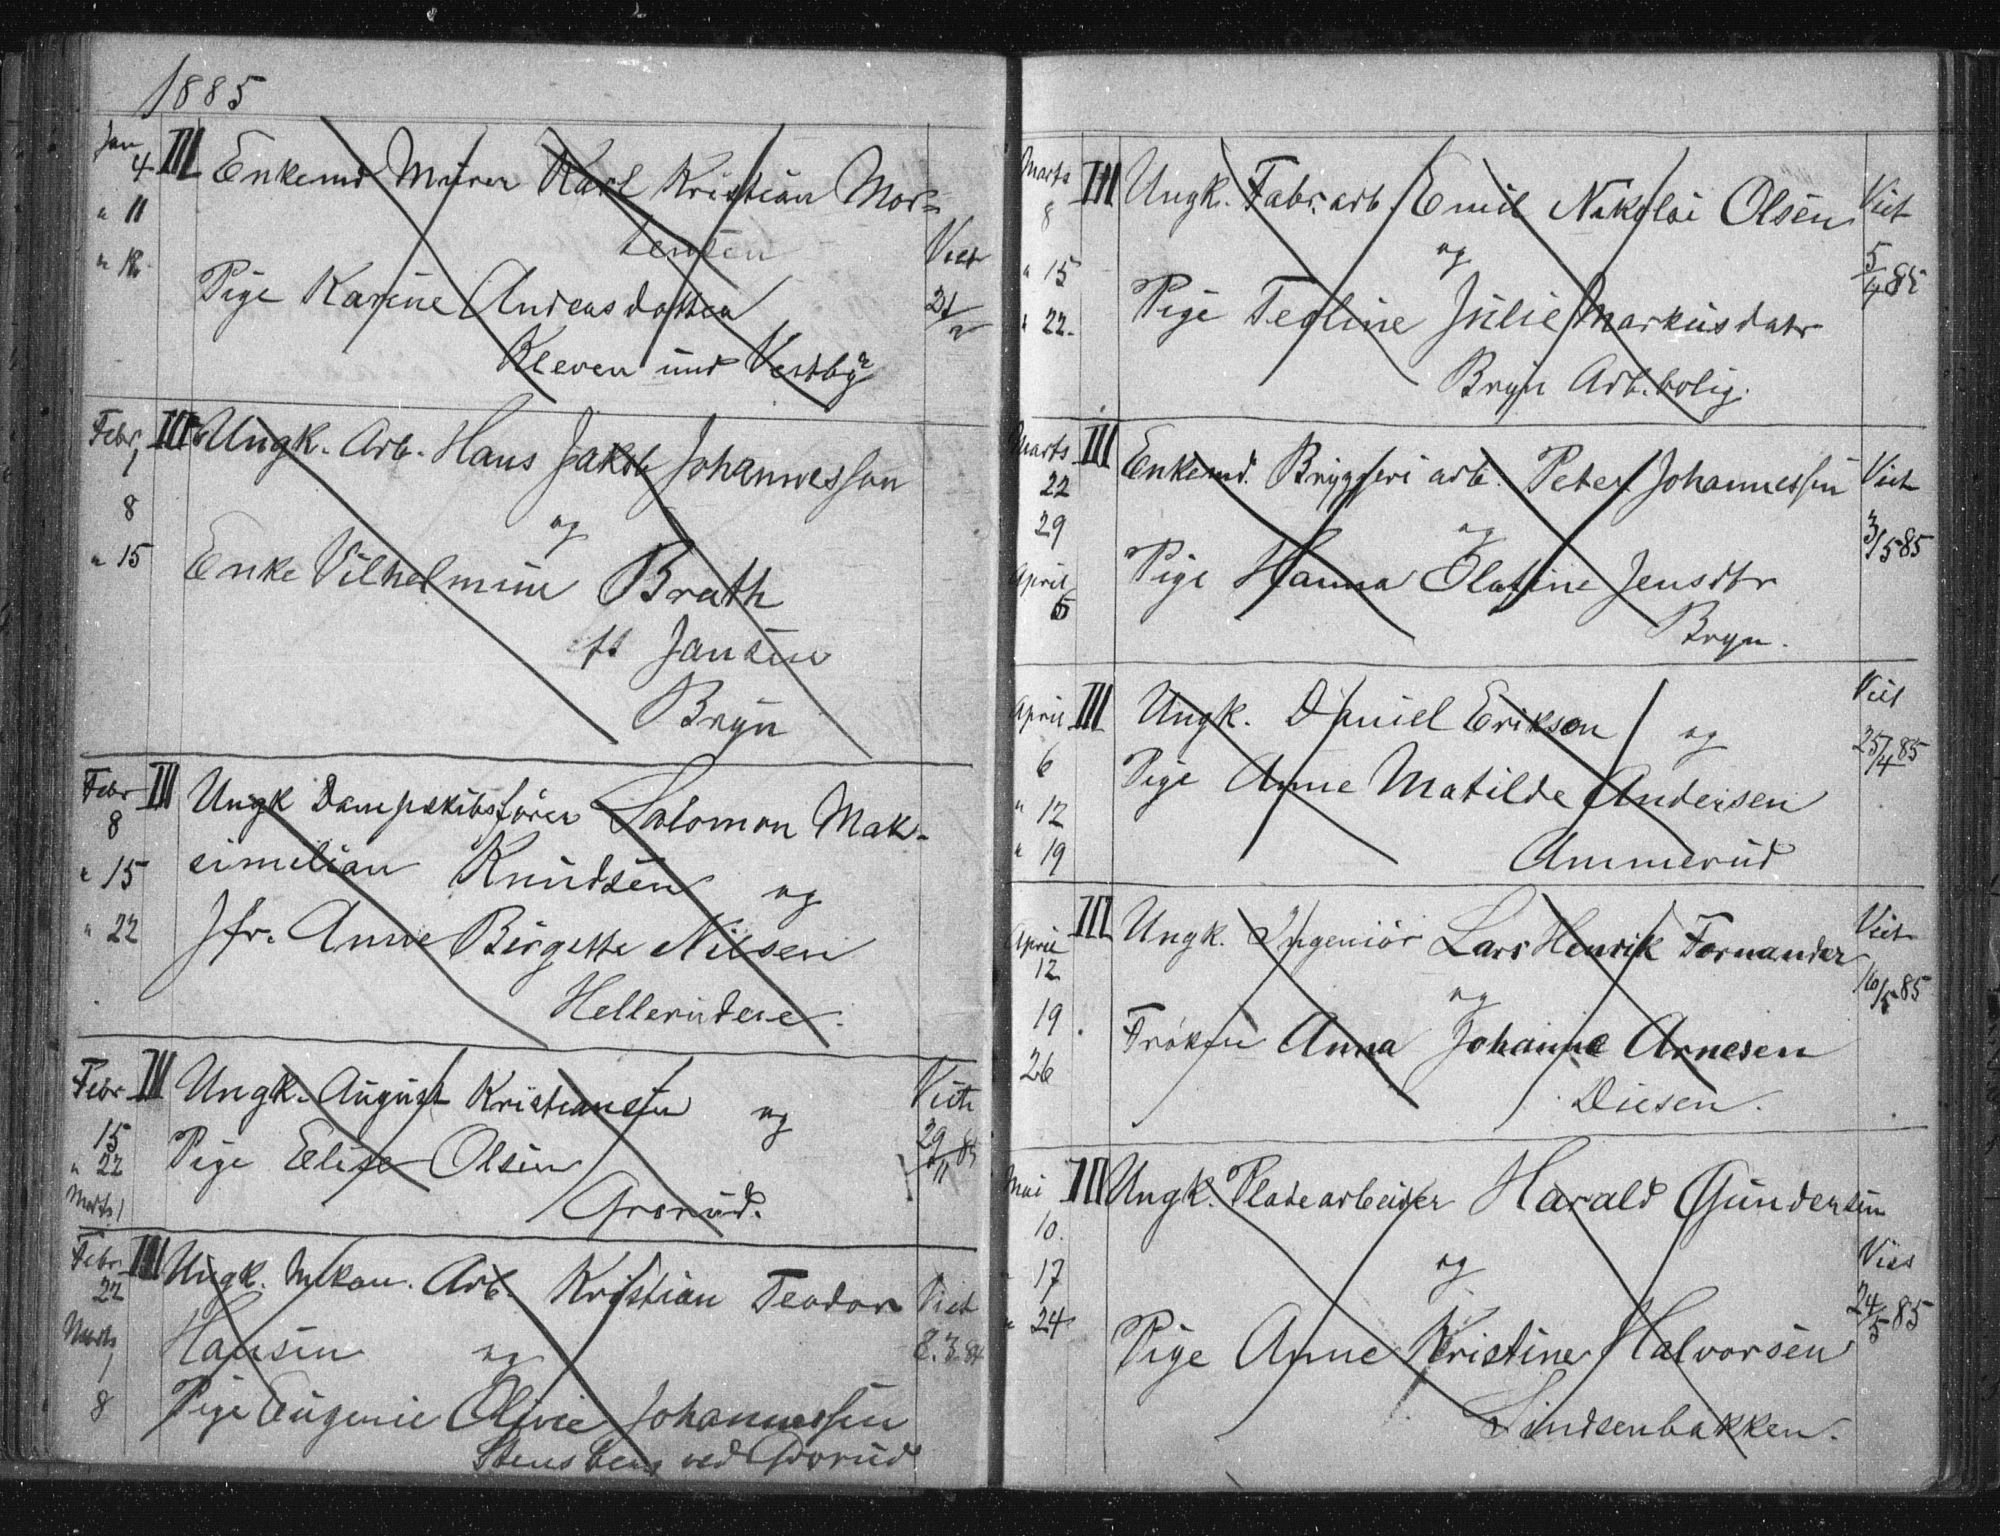 1885
Jan 4 III Enkemd Murer Karl Kristian Mor=
" 11 tensen Viet
" 18 Pige Karine Andreasdatter 21/2
Kleven und Vestby
Febr. 1 III Ungk. Arb. Hans Jakob Johannessen
8 og
" 15 Enke Vilhelmine Brath
ft Jansen
Bryn
Febr 8 III Ungk Dampskibsfører Salomon Mak-
" 15 similian Knudsen og
" 22 Jfr. Anne Birgette Nilsen
Hellerudene.
Febr III Ungk. August Kristiansen og Viet
15 Pige Elise Olsen 29/11 85
" 22 Grorud.
Marts 1
Febr. 22 III Ungk. Mekan. Arb. Kristian Teodor Viet
Marts 1 Hansen og 8.3.
8 Pige Eugenie Olivie Johannessen
Stensberg ved Grorud
Marts 8 III Ungk. Fabr. arb. Emil Nikolai Olsen Viet
" 15 og 5/4 85
" 22. Pige Tealine Julie Markusdatr
Bryn Arb. bolig.
Marts 22 III Enkemd. Bryggeri arb. Peter Johannessen Viet
29 og 3/5 85
April 5 Pige Hanna Olafine Jensdtr
Bryn.
April 6 III Ungk. Daniel Erikson og Viet
" 12 Pige Anne Matilde Andersen 25/4 85
" 19 Ammerud
April 12 III Ungk. Ingeniør Lars Henrik Fornander Viet
19 og 16/5 85
26 Frøken Anna Johanne Arnesen
Diesen.
Mai 10. III Ungk. Pladearbeider Harald Gundersen
" 17 og Viet
" 24 Pige Anne Kristine Halvorsen 24/5 85
Lindsenbakken.